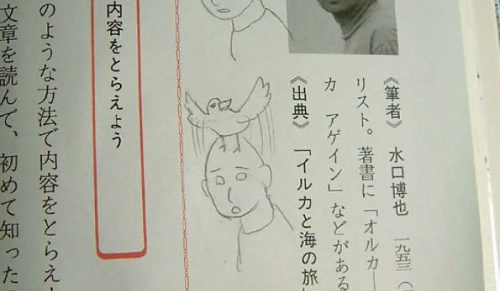 《筆者》 水口博也 一九五三(
リスト。著書に「オルカ―
カ アゲイン」などがある
《出典》 「イルカと海の旅」
内容をとらえよう
のような方法で内容をとらえ
文章を読んで、初めて知った